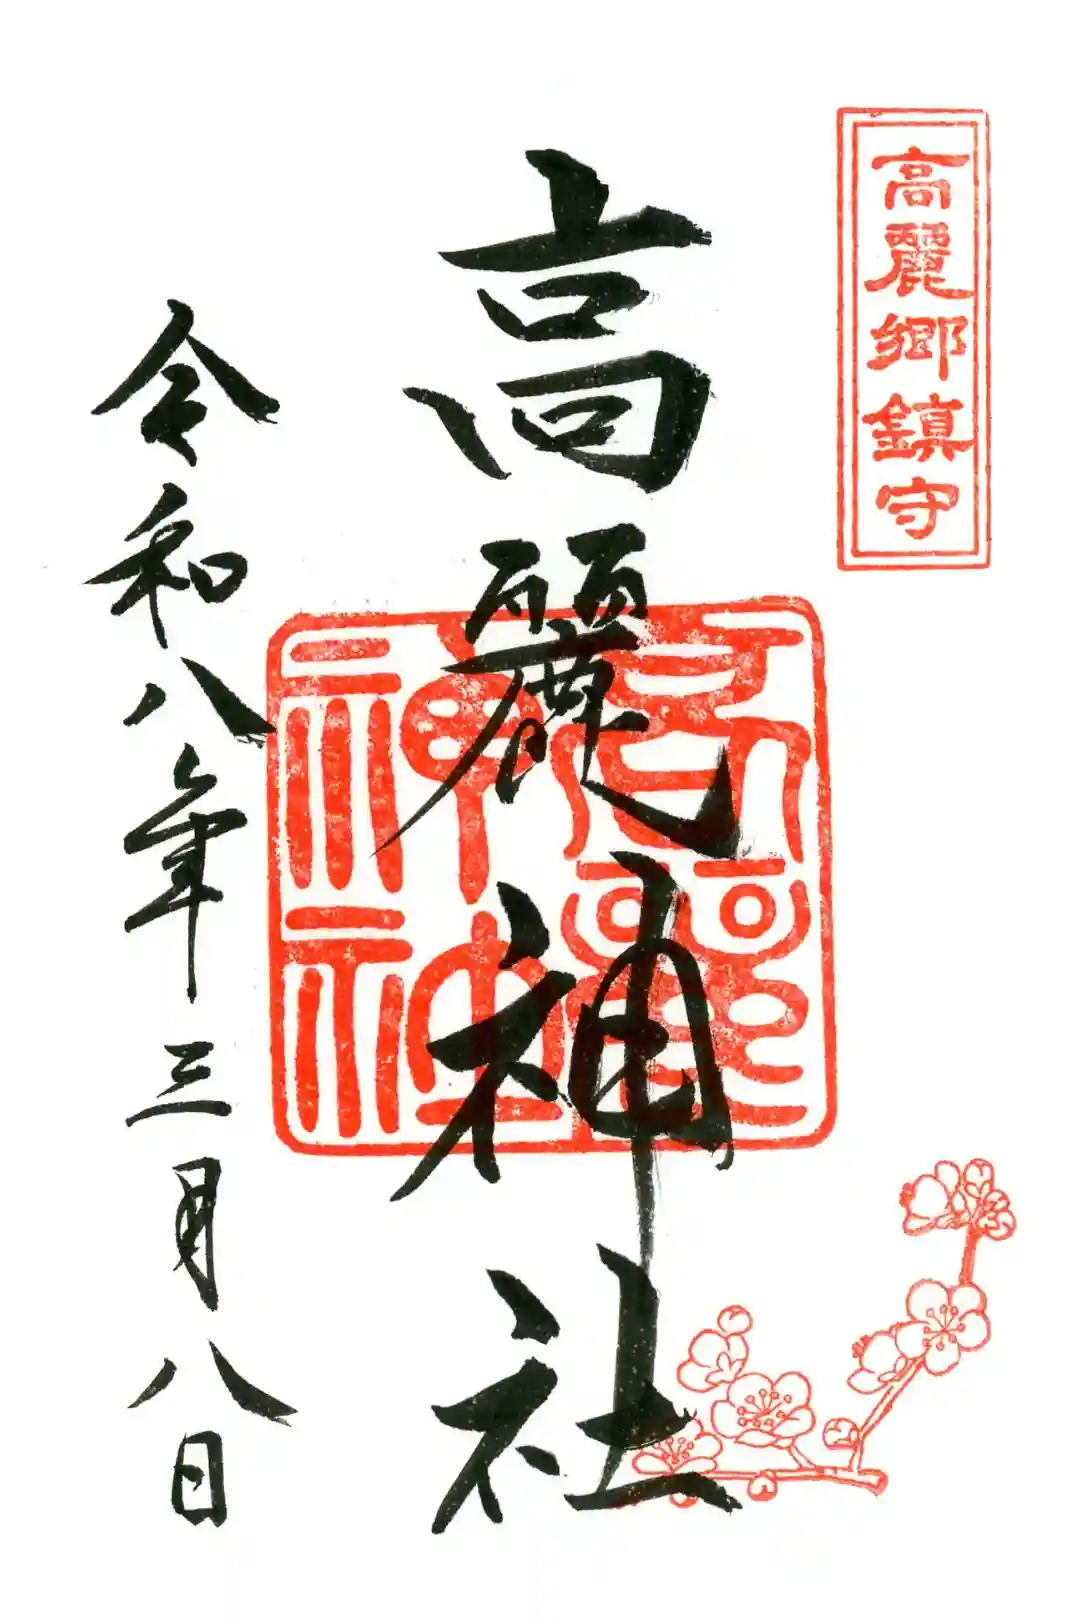 高麗郷鎮守
高麗神社
高麗神社
令和八年三月八日